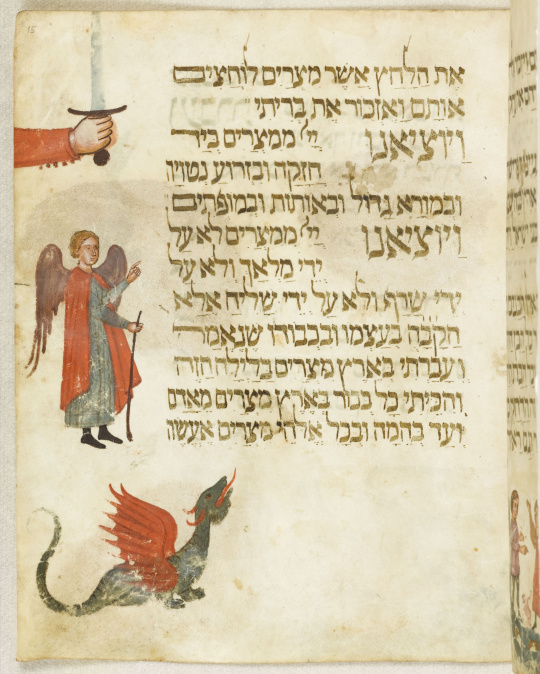 15
את הלחץ אשר מצרים לוחצים
אותם ואזכור את בריתי
ויוציאנו יי' ממצרים ביד
חזקה ובזרוע נטויה
ובמורא גדול ובאותות ובמופתים
ויוציאנו יי' ממצרים לא על
ידי מלאך ולא על
ידי שרף ולא על ידי שליח אלא
הקבה בעצמו ובכבודו שנאמר
ועברתי בארץ מצרים בלילה הזה
והכיתי כל בכור בארץ מצרים מאדם
ועד בהמה ובכל אלהי מצרים אעשה